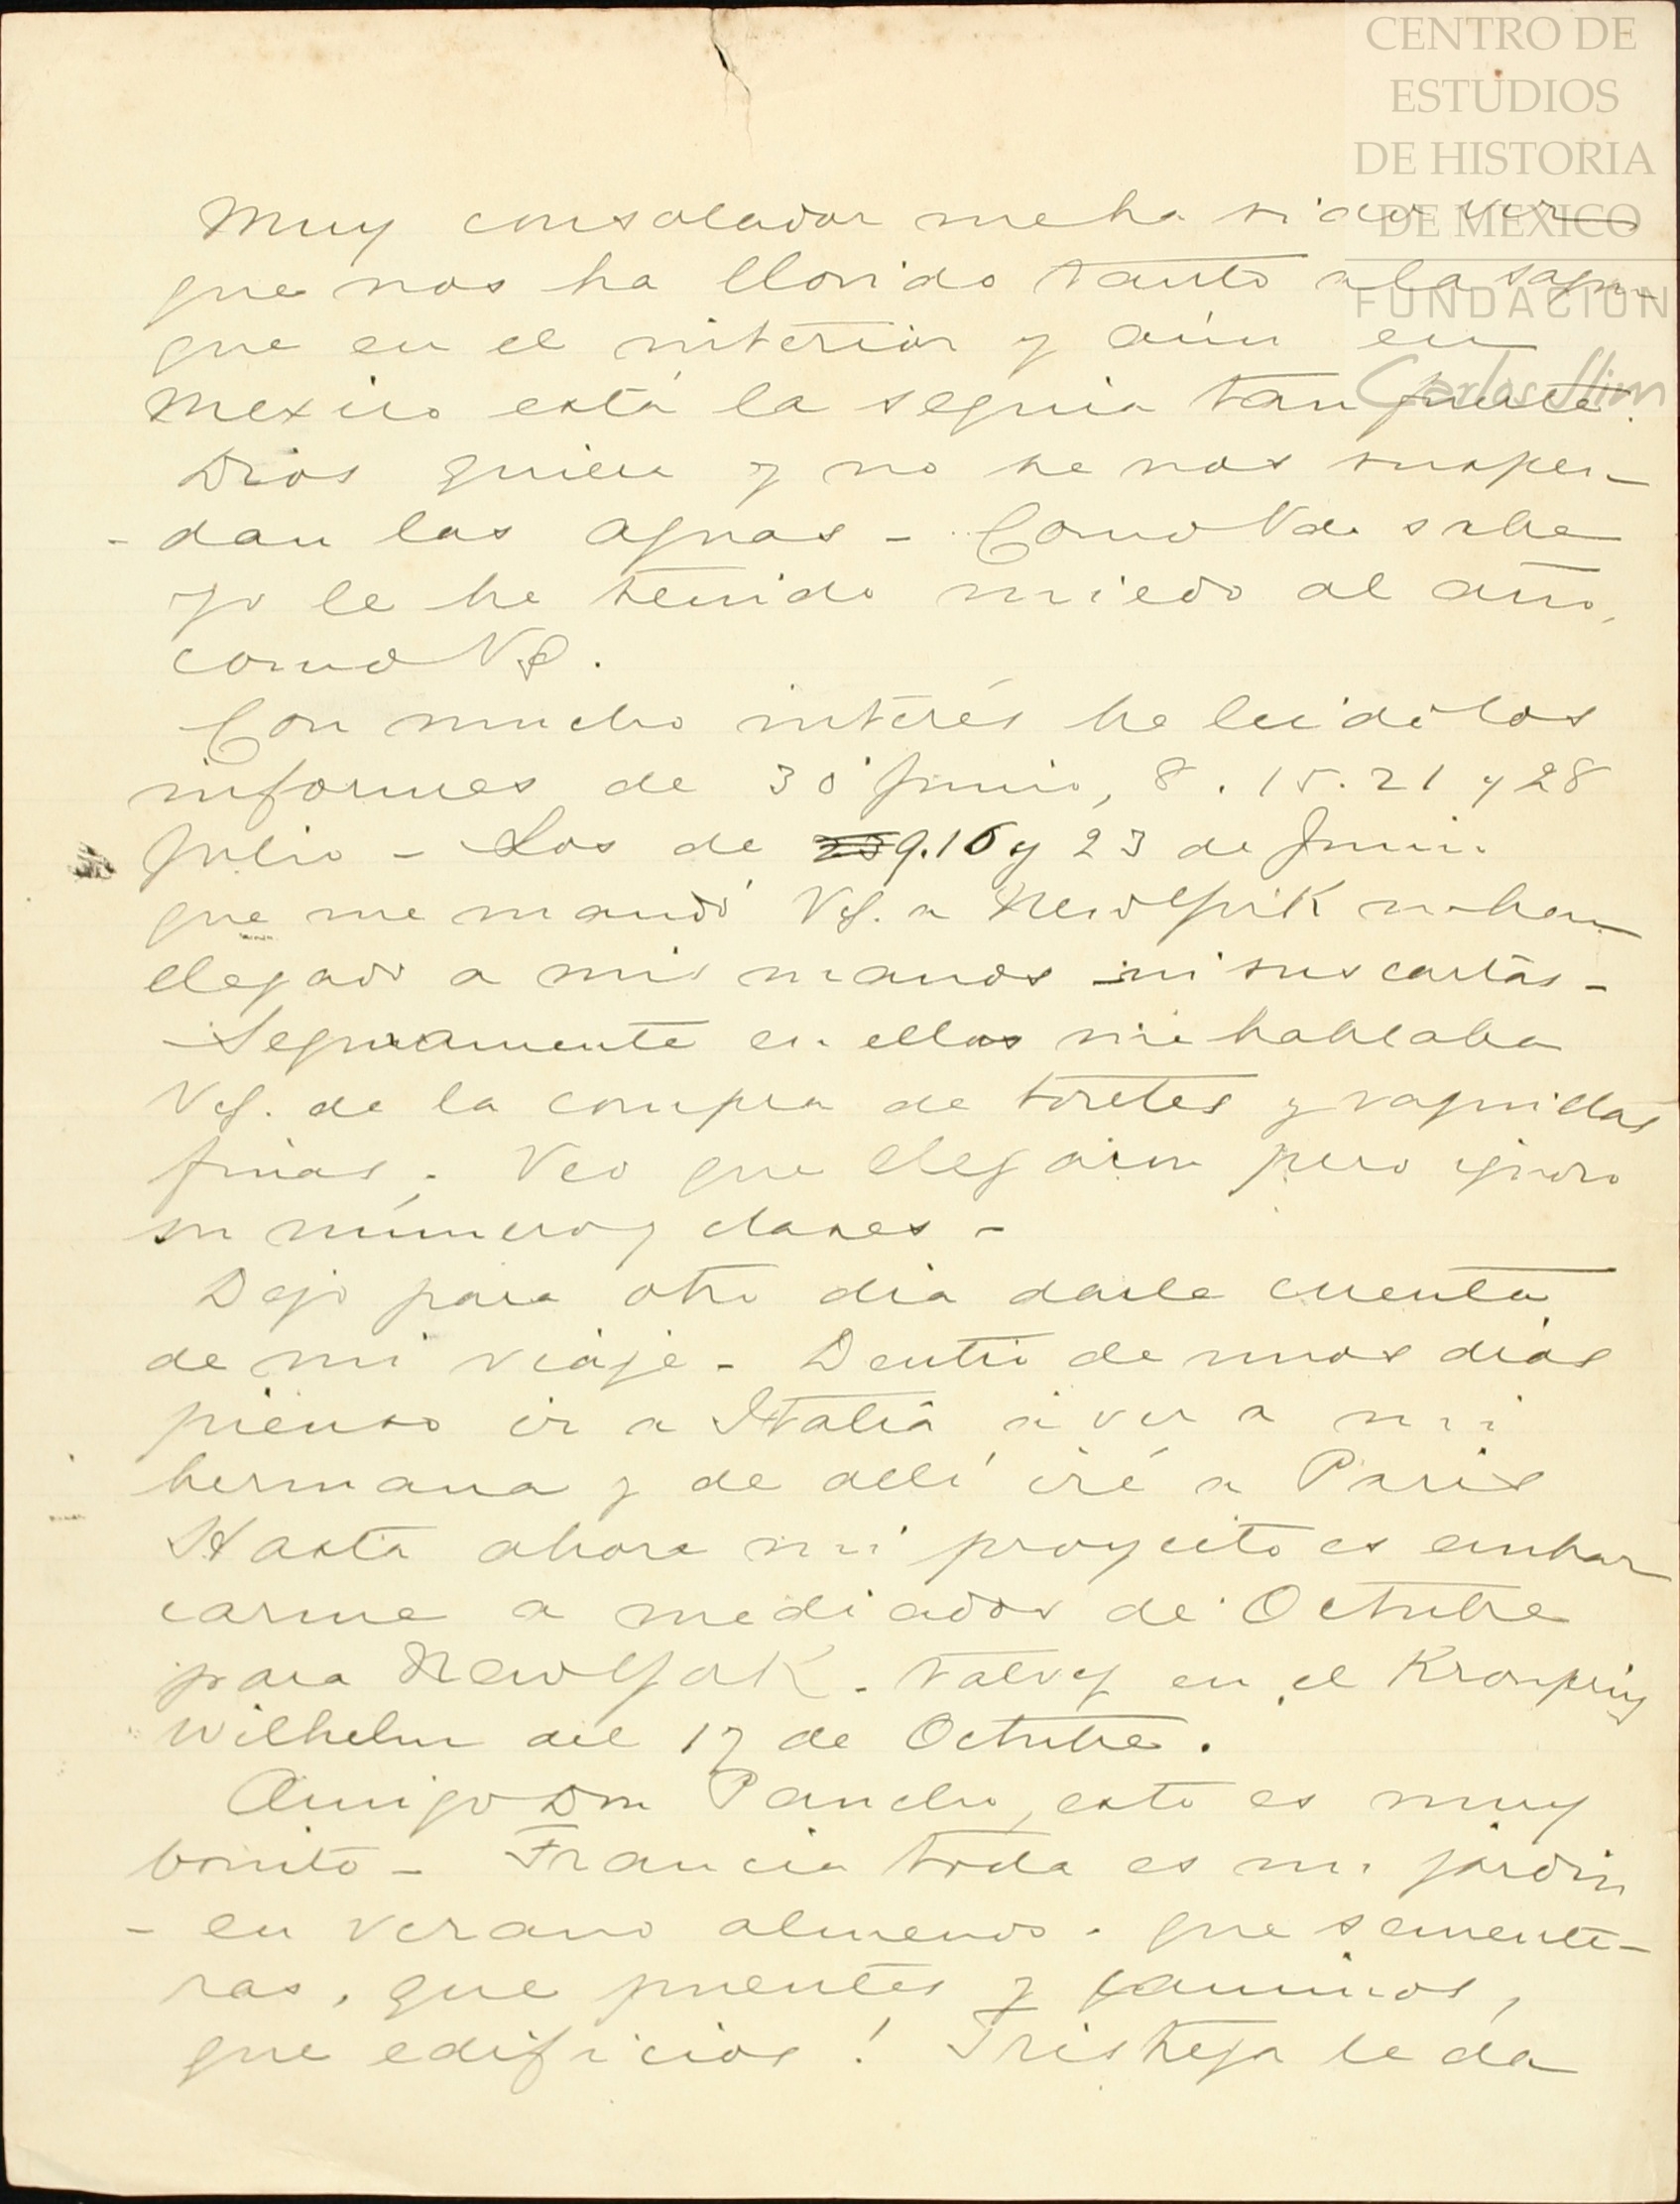 CENTRO DE
ESTUDIOS
DE HISTORIA
DE MEXICO
FUNDACION
Carlos Slim
Muy consolador me ha sido ver
que nos ha llovido tanto a la
que en el interior y aún en
Mexico está la seguia tan fuerte.
Dios quiera y no se nos suspen-
-dan las aguas - Como Vd. sabe
yo le he tenido miedo al año,
como Vd.
Con mucho interés he leido los
informes de 30 Junio, 8. 15. 21 y 28
Julio - Los de 9.16 y 23 de Junio
que me mandó Vd. a New York no han
llegado a mis manos ni sus cartas -
Seguramente en ellas me hablaba
Vd. de la compra de toretes y vaquillas
finas. Veo que llegaron pero ignoro
su número y clases -
Dejo para otro dia darle cuenta
de mi viaje - Dentro de unos dias
pienso ir a Italia a ver a mi
hermana y de allí iré a Paris
Hasta ahora mi proyecto es embar
carme a mediados de Octubre
para New York. Talvez en el Kronprinz
Wilhelm del 17 de Octubre.
Amigo Dn Pancho, esto es muy
bonito - Francia toda es un jardin
- en verano almenos - que semente-
ras, que puentes y caminos,
que edificios! Tristeza le da